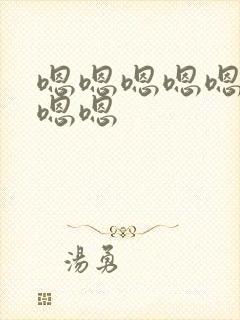 嗯嗯嗯嗯嗯
嗯嗯
湯勇